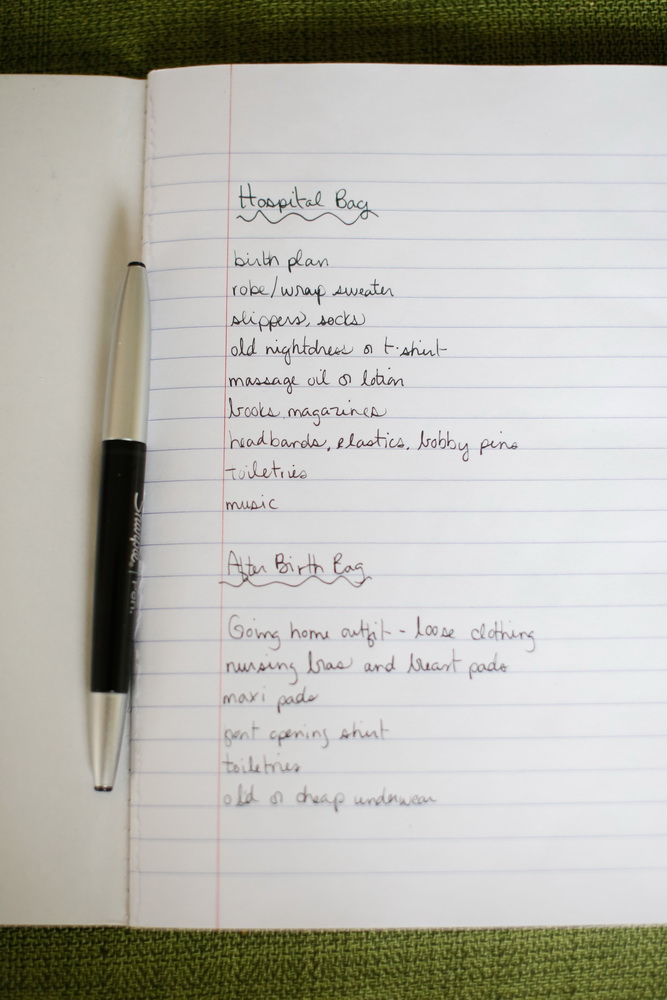 Hospital Bag
birth plan
robe/wrap sweater
slippers, socks
old nightdress or t-shirt
massage oil or lotion
books, magazines
headbands, elastics, bobby pins
toiletries
music
After Birth Bag
Going home outfit - loose clothing
nursing bras and breast pads
maxi pads
front opening shirt
toiletries
old or cheap underwear
Sharpie Pen.